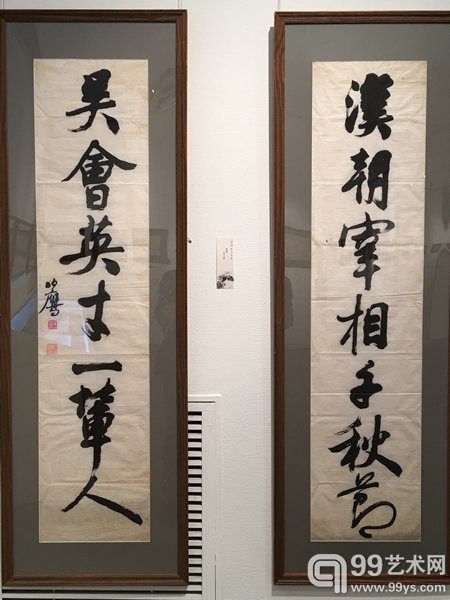 漢朝宰相千秋節
吳會英才一輩人
99艺术网
www.99ys.com